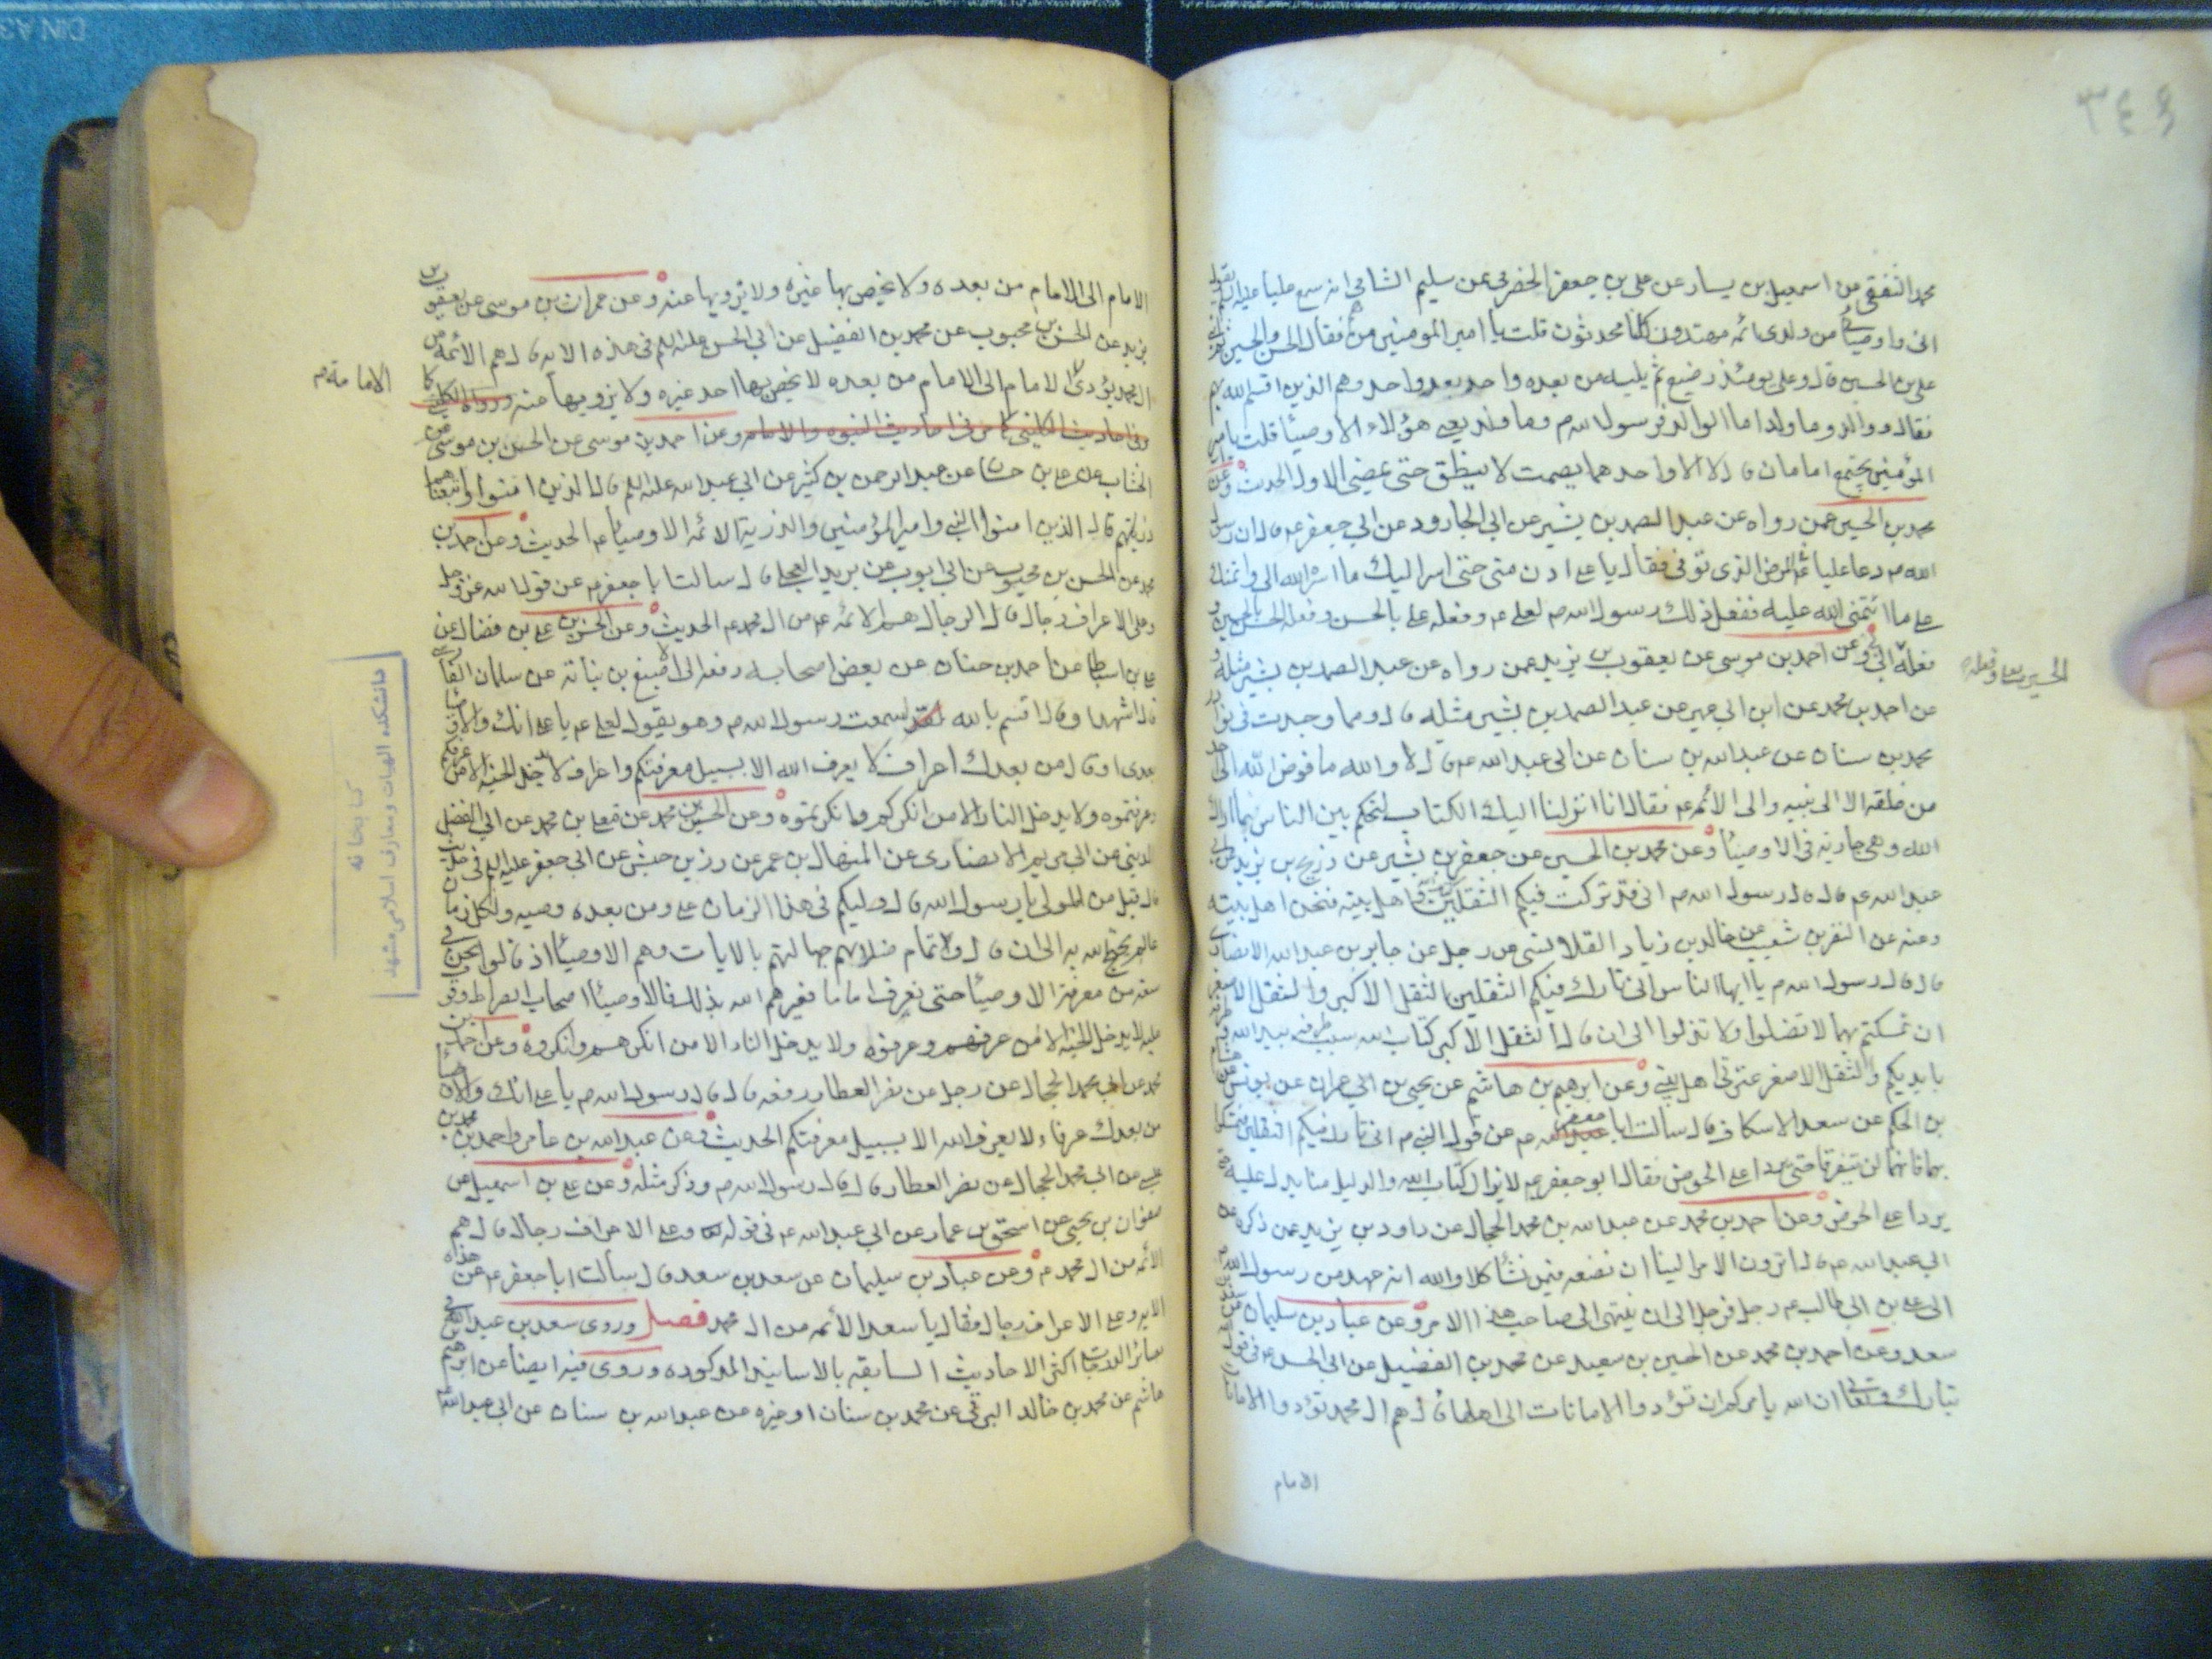 محمد الثقفي عن اسمعيل بن يسار عن علي بن جعفر الحضرمي عن سليم الشامي انه سمع عليا عليه السلم يقول
اني واوصيائي من ولدي ائمه مهتدون كلنا محدثون قلت يا امير المومنين من هم فقال الحسن والحسين ثم ابني
علي بن الحسين قال وعلي يومئذ رضيع ثم ثمنيه من بعده واحد بعد واحد وهم الذين اقسم الله بهم
فقال ووالد وما ولد اما الوالد فرسول الله ص وما ولد يعني هؤلاء الاوصيئا قلت يا امير
المؤمنين يجتمع امامان قال لا الا واحدهما يصمت لا ينطق حتى يمضي الاول الحديث وعن
محمد بن الحسين عمن رواه عن عبد الصمد بن بشير عن ابي الجارود عن ابي جعفر ع قال ان رسول
الله ص دعا عليا ع في المرض الذي توفى فقال يا علي ادن مني حتى اسر اليك ما اسر الله الي وائتمنك
على ما ائتمنني الله عليه ففعل ذلك رسول الله ص لعلي ع وفعله علي بالحسن وفعله الحسن بالحسين و
فعله ابي بي وعن احمد بن موسى عن يعقوب بن يزيد عمن رواه عن عبد الصمد بن بشير مثله و
عن احمد بن محمد عن ابن ابي عمير عن عبد الصمد بن بشير مثله قال ومما وجدت في نوادر
محمد بن سنان عن عبد الله بن سنان عن ابي عبد الله ع قال لا والله ما فوض الله الى احد
من خلقه الا الى نبيه والى الائمه ع فقال انا انزلنا اليك الكتاب لتحكم بين الناس بما اراك
الله وهي جاريه في الاوصيئا وعن محمد بن الحسين عن جعفر بن بشير عن ذريح بن يزيد عن ابي
عبد الله ع قال قال رسول الله ص اني قد تركت فيكم الثقلين كتاب الله واهل بيته فنحن اهل بيته
وعنه عن النضر بن شعيب عن خالد بن زياد القلانسي عن رجل عن جابر بن عبد الله الانصاري
قال قال رسول الله ص يا ايها الناس اني تارك فيكم الثقلين الثقل الاكبر والثقل الاصغر
ان تمسكتم بهما لا تضلوا ولا تذلوا الى ان قال الثقل الاكبر كتاب الله سبب طرفه بيد الله وطرفه
بايديكم والثقل الاصغر عترتي اهل بيتي وعن ابرهيم بن هاشم عن يحيى بن ابي عمران عن يونس عن هشام
بن الحكم عن سعد الاسكاف قال سالت ابا جعفر ع عن قول النبي ص اني تارك فيكم الثقلين فتمسكوا
بهما فانهما لن يتفرقا حتى يردا علي الحوض فقال ابو جعفر ع لا يزال كتاب الله والدليل منا يدل عليه حتى
يردا علي الحوض وعن احمد بن محمد عن عبد الله بن محمد الحجال عن داود بن يزيد عمن ذكره عن
ابي عبد الله ع قال اترون الامر الينا ان نضعه فيمن نشأ كلا والله انه عهد من رسول الله ص
الى علي بن ابي طالب ع رجل فرجل الى ان ينتهي الى صاحب هذا الامر وعن عباد بن سليمان عن
سعد وعن احمد بن محمد عن الحسين بن سعيد عن محمد بن الفضيل عن ابي الحسن ع في قول الله
تبارك وتعالى ان الله يامركم ان تؤدوا الامانات الى اهلها قال هم ال محمد تؤدوا الامانات
الحسين وفعله
الامام
الامام الى الامام من بعده ولا يخص بها غيره ولا يزويها عنه وعن عمران بن موسى عن يعقوب بن
يزيد عن الحسن بن محبوب عن محمد بن الفضيل عن ابي الحسن عليه السلم في هذه الايه قال هم الائمه من
ال محمد يؤدي الامام الى الامام من بعده لا يخص بها احد غيره ولا يزويها عنه ورواه الكليني كما
وفي احاديث الكليني كما مر في احاديث النبوه والامامه وعن احمد بن موسى عن الحسن بن موسى
الامامة م
الخشاب عن علي بن حسان عن عبد الرحمن بن كثير عن ابي عبد الله عليه السلم قال الذين امنوا واتبعناهم
ذريتهم قال الذين امنوا النبي وامير المؤمنين والذرية الائمه الاوصيئا ع الحديث وعن احمد بن
محمد عن الحسن بن محبوب عن ابي ايوب عن بريد العجلي قال سالت ابا جعفر ع عن قول الله عز وجل
وعلى الاعراف رجال قال الرجال هم الائمه ع من ال محمد ع الحديث وعن الحسن بن علي بن فضال عن
علي بن اسباط عن احمد بن حنان عن بعض اصحابه رفعه الى الاصبغ بن نباتة عن سلمان الفارسي
قال اشهد او قال اقسم بالله لسمعت رسول الله ص وهو يقول لعلي ع يا علي انك والاوصيئا
بعدي او قال من بعدك اعراف لا يعرف الله الا بسبيل معرفتكم واعراف لا يدخل الجنه الا من عرفكم
وعرفتموه ولا يدخل النار الا من انكركم وانكرتموه وعن الحسين بن محمد عن معلى بن محمد عن ابي الفضل
المديني عن ابي مريم الانصاري عن المنهال بن عمر عن رزين حبش عن ابي جعفر عليه السلم في حديث
قال قيل من الولي يا رسول الله قال وليكم في هذا الزمان علي ومن بعده وصيه ولكل زمان
عالم يحتج الله به الى ان قال وانما تمام ضلالتهم جهالتهم بالايات وهم الاوصيئا اذ قالوا نحن في
سعه من معرفة الاوصيئا حتى نعرف اماما فعيرهم الله بذلك فالاوصيئا اصحاب الصراط وقوف
عليه لا يدخل الجنه الا من عرفهم وعرفوه ولا يدخل النار الا من انكرهم وانكروه وعن احمد بن
محمد عن ابي محمد الحجال عن رجل عن نصر العطار رفعه قال قال رسول الله ص يا علي انك والاوصيئا
من بعدك عرفاء لا يعرف الله الا بسبيل معرفتكم الحديث وعن عبد الله بن عامر واحمد بن محمد بن
عيسى عن ابي محمد الحجال عن نصر العطار قال قال رسول الله ص وذكر مثله وعن علي بن اسمعيل عن
صفوان بن يحيى عن اسحق بن عمار عن ابي عبد الله ع في قوله وعلى الاعراف رجال قال هم
الائمه من ال محمد ع وعن عباد بن سليمان عن سعد بن سعد قال سالت ابا جعفر ع عن هذه
الايه وعلى الاعراف رجال فقال يا سعد الائمه من ال محمد فصل وروى سعد بن عبد الله في
بصائر الدرجات اكثر الاحاديث السابقه بالاسانيد المذكوره وروى فيه ايضا عن ابرهيم بن
هاشم عن محمد بن خالد البرقي عن محمد بن سنان او غيره عن عبد الله بن سنان عن ابي عبد الله
دانشكده الهيات ومعارف اسلامى مشهد
كتابخانه